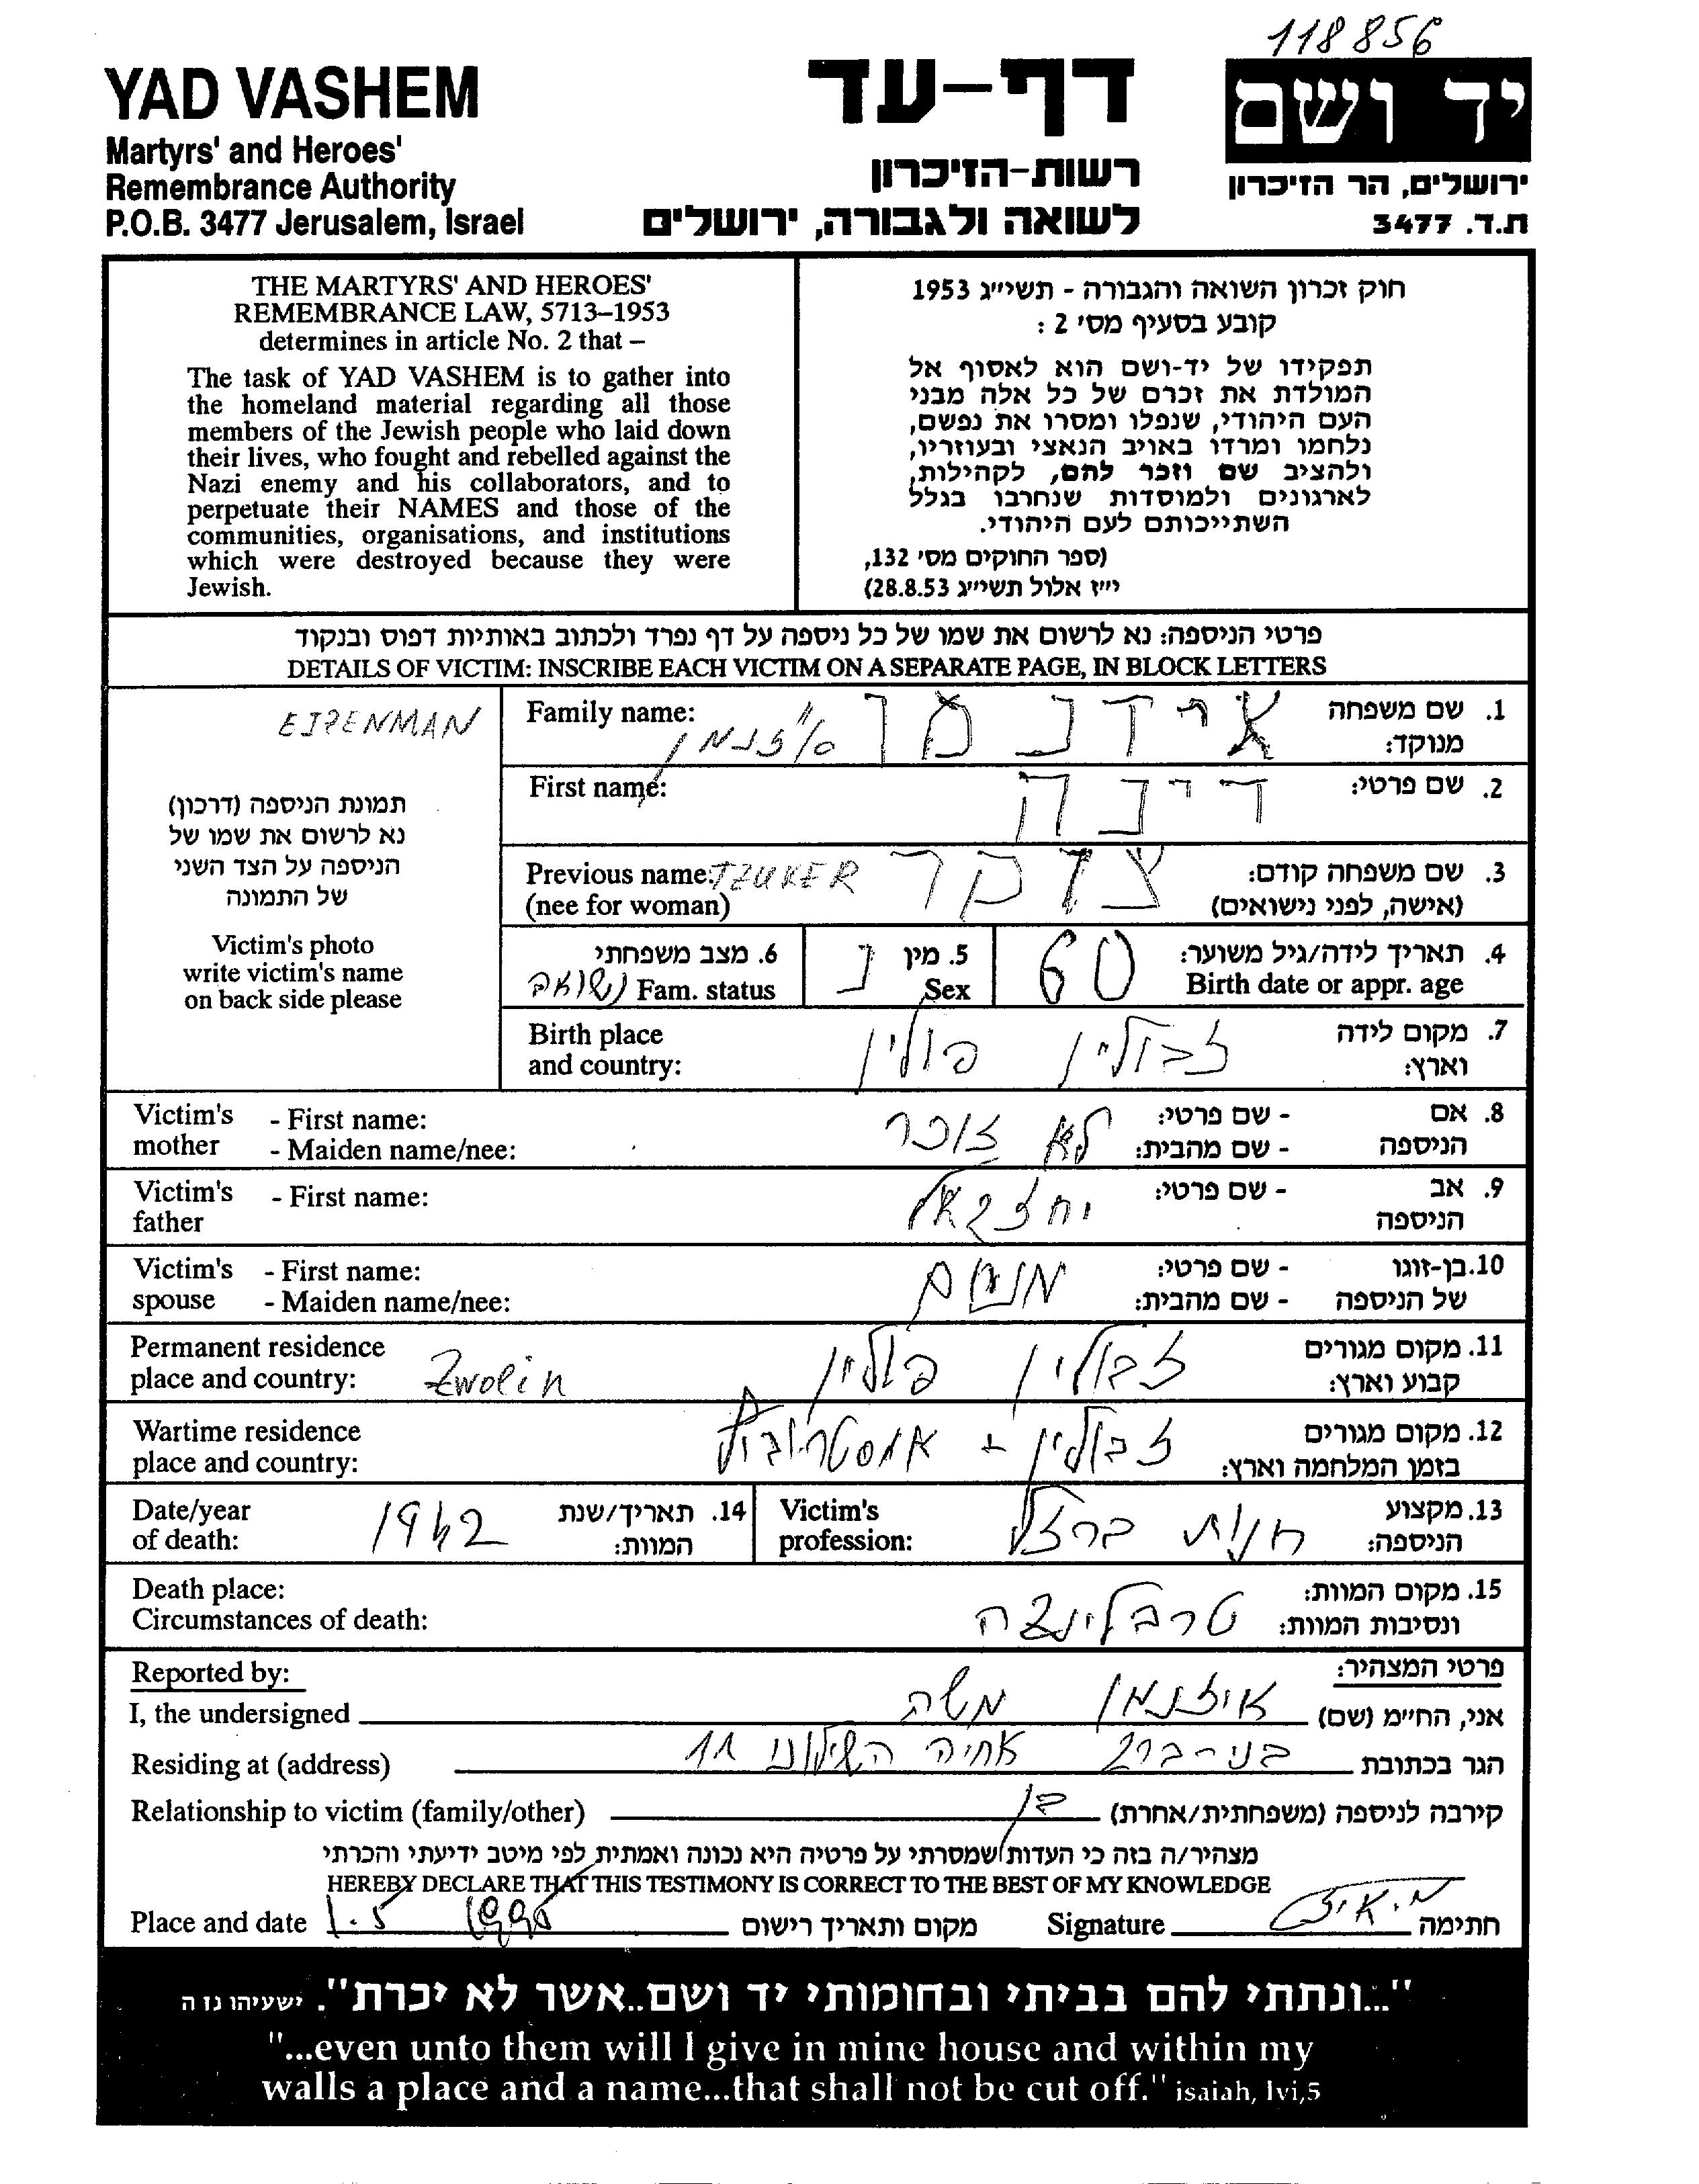 118856
YAD VASHEM
Martyrs' and Heroes'
Remembrance Authority
P.O.B. 3477 Jerusalem, Israel
דף-עד
רשות-הזיכרון
לשואה ולגבורה, ירושלים
יד ושם
ירושלים, הר הזיכרון
ת.ד. 3477
THE MARTYRS' AND HEROES'
REMEMBRANCE LAW, 5713–1953
determines in article No. 2 that –
The task of YAD VASHEM is to gather into
the homeland material regarding all those
members of the Jewish people who laid down
their lives, who fought and rebelled against the
Nazi enemy and his collaborators, and to
perpetuate their NAMES and those of the
communities, organisations, and institutions
which were destroyed because they were
Jewish.
חוק זכרון השואה והגבורה - תשי״ג 1953
קובע בסעיף מס׳ 2 :
תפקידו של יד-ושם הוא לאסוף אל
המולדת את זכרם של כל אלה מבני
העם היהודי, שנפלו ומסרו את נפשם,
נלחמו ומרדו באויב הנאצי ובעוזריו,
ולהציב שם וזכר להם, לקהילות,
לארגונים ולמוסדות שנחרבו בגלל
השתייכותם לעם היהודי.
(ספר החוקים מס׳ 132,
י״ז אלול תשי״ג 28.8.53)
פרטי הניספה: נא לרשום את שמו של כל ניספה על דף נפרד ולכתוב באותיות דפוס ובנקוד
DETAILS OF VICTIM: INSCRIBE EACH VICTIM ON A SEPARATE PAGE, IN BLOCK LETTERS
EIZENMAN
תמונת הניספה (דרכון)
נא לרשום את שמו של
הניספה על הצד השני
של התמונה
Victim's photo
write victim's name
on back side please
1. שם משפחה
מנוקד:
איזנמן
Family name:
2. שם פרטי:
דינה
First name:
3. שם משפחה קודם:
(אישה, לפני נישואים)
צוקר
TZUKER
Previous name:
(nee for woman)
4. תאריך לידה/גיל משוער:
Birth date or appr. age
60
5. מין
Sex
נ
6. מצב משפחתי
Fam. status
נשואה
7. מקום לידה
וארץ:
זבולין פולין
Birth place
and country:
8. אם
הניספה
- שם פרטי:
- שם מהבית:
לא זוכר
Victim's
mother
- First name:
- Maiden name/nee:
9. אב
הניספה
- שם פרטי:
יחזקאל
Victim's
father
- First name:
10. בן-זוגו
של הניספה
- שם פרטי:
- שם מהבית:
מנחם
Victim's
spouse
- First name:
- Maiden name/nee:
11. מקום מגורים
קבוע וארץ:
זבולין פולין
Zwolin
Permanent residence
place and country:
12. מקום מגורים
בזמן המלחמה וארץ:
זבולין +
Wartime residence
place and country:
13. מקצוע
הניספה:
חנות ברזל
Victim's
profession:
14. תאריך/שנת
המוות:
1942
Date/year
of death:
15. מקום המוות:
ונסיבות המוות:
טרבלינצה
Death place:
Circumstances of death:
פרטי המצהיר:
Reported by:
אני, החי״מ (שם) איזנמן משה
I, the undersigned
הגר בכתובת בני-ברק אחיה השילוני 11
Residing at (address)
קירבה לניספה (משפחתית/אחרת) בן
Relationship to victim (family/other)
מצהיר/ה בזה כי העדות שמסרתי על פרטיה היא נכונה ואמתית לפי מיטב ידיעתי והכרתי
HEREBY DECLARE THAT THIS TESTIMONY IS CORRECT TO THE BEST OF MY KNOWLEDGE
Place and date 1.5 מקום ותאריך רישום
Signature חתימה
"...ונתתי להם בביתי ובחומותי יד ושם..אשר לא יכרת". ישעיהו נו ה
"...even unto them will I give in mine house and within my
walls a place and a name...that shall not be cut off." isaiah, lvi,5